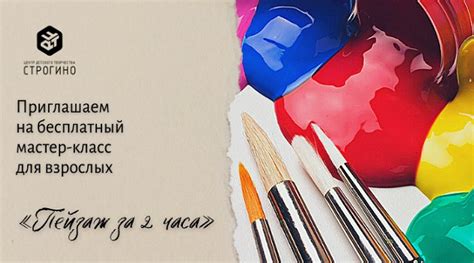 ЦЕНТР ДЕТСКОГО ТВОРЧЕСТВА
СТРОГИНО
Приглашаем
на бесплатный
мастер-класс
для взрослых
«Пейзаж за 2 часа»